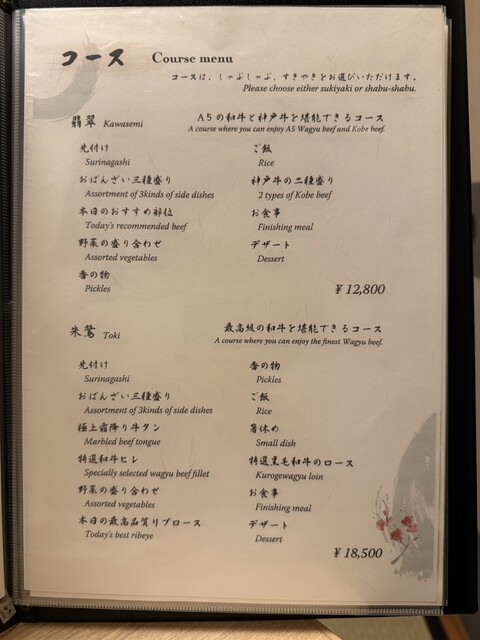 コース Course menu
コースは、しゃぶしゃぶ、すきやきをお選びいただけます。
Please choose either sukiyaki or shabu-shabu.
翡翠 Kawasemi
A5の和牛と神戸牛を堪能できるコース
A course where you can enjoy A5 Wagyu beef and Kobe beef.
先付け
Surinagashi
おばんざい三種盛り
Assortment of 3kinds of side dishes
本日のおすすめ部位
Today's recommended beef
野菜の盛り合わせ
Assorted vegetables
香の物
Pickles
ご飯
Rice
神戸牛の二種盛り
2 types of Kobe beef
お食事
Finishing meal
デザート
Dessert
¥12,800
朱鷺 Toki
最高級の和牛を堪能できるコース
A course where you can enjoy the finest Wagyu beef.
先付け
Surinagashi
おばんざい三種盛り
Assortment of 3kinds of side dishes
極上霜降り牛タン
Marbled beef tongue
特選和牛ヒレ
Specially selected wagyu beef fillet
野菜の盛り合わせ
Assorted vegetables
本日の最高品質リブロース
Today's best ribeye
香の物
Pickles
ご飯
Rice
箸休め
Small dish
特選黒毛和牛のロース
Kurogewagyu loin
お食事
Finishing meal
デザート
Dessert
¥18,500